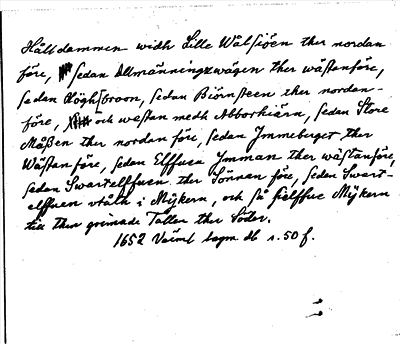 Hålldammen widh Lille Wålsiöen ther nordan
före, sedan Allmänningzwägen ther wästanföre,
sedan Högh[broon, sedan Biörnsteen ther nordan-
före, och westan medh Abborkiärn, sedan Store
Måßen ther nordan före, sedan Immeberget ther
Wästan före, sedan Elffuen Imman ther wästanföre,
sedan Swartelffuen ther Sönnan före, seden Swart-
elffuen vthåth i Mÿkern, och så sielffue Mÿkern
till then grimade Tallen ther Söder.
1652 Värml lagm db s. 50 f.